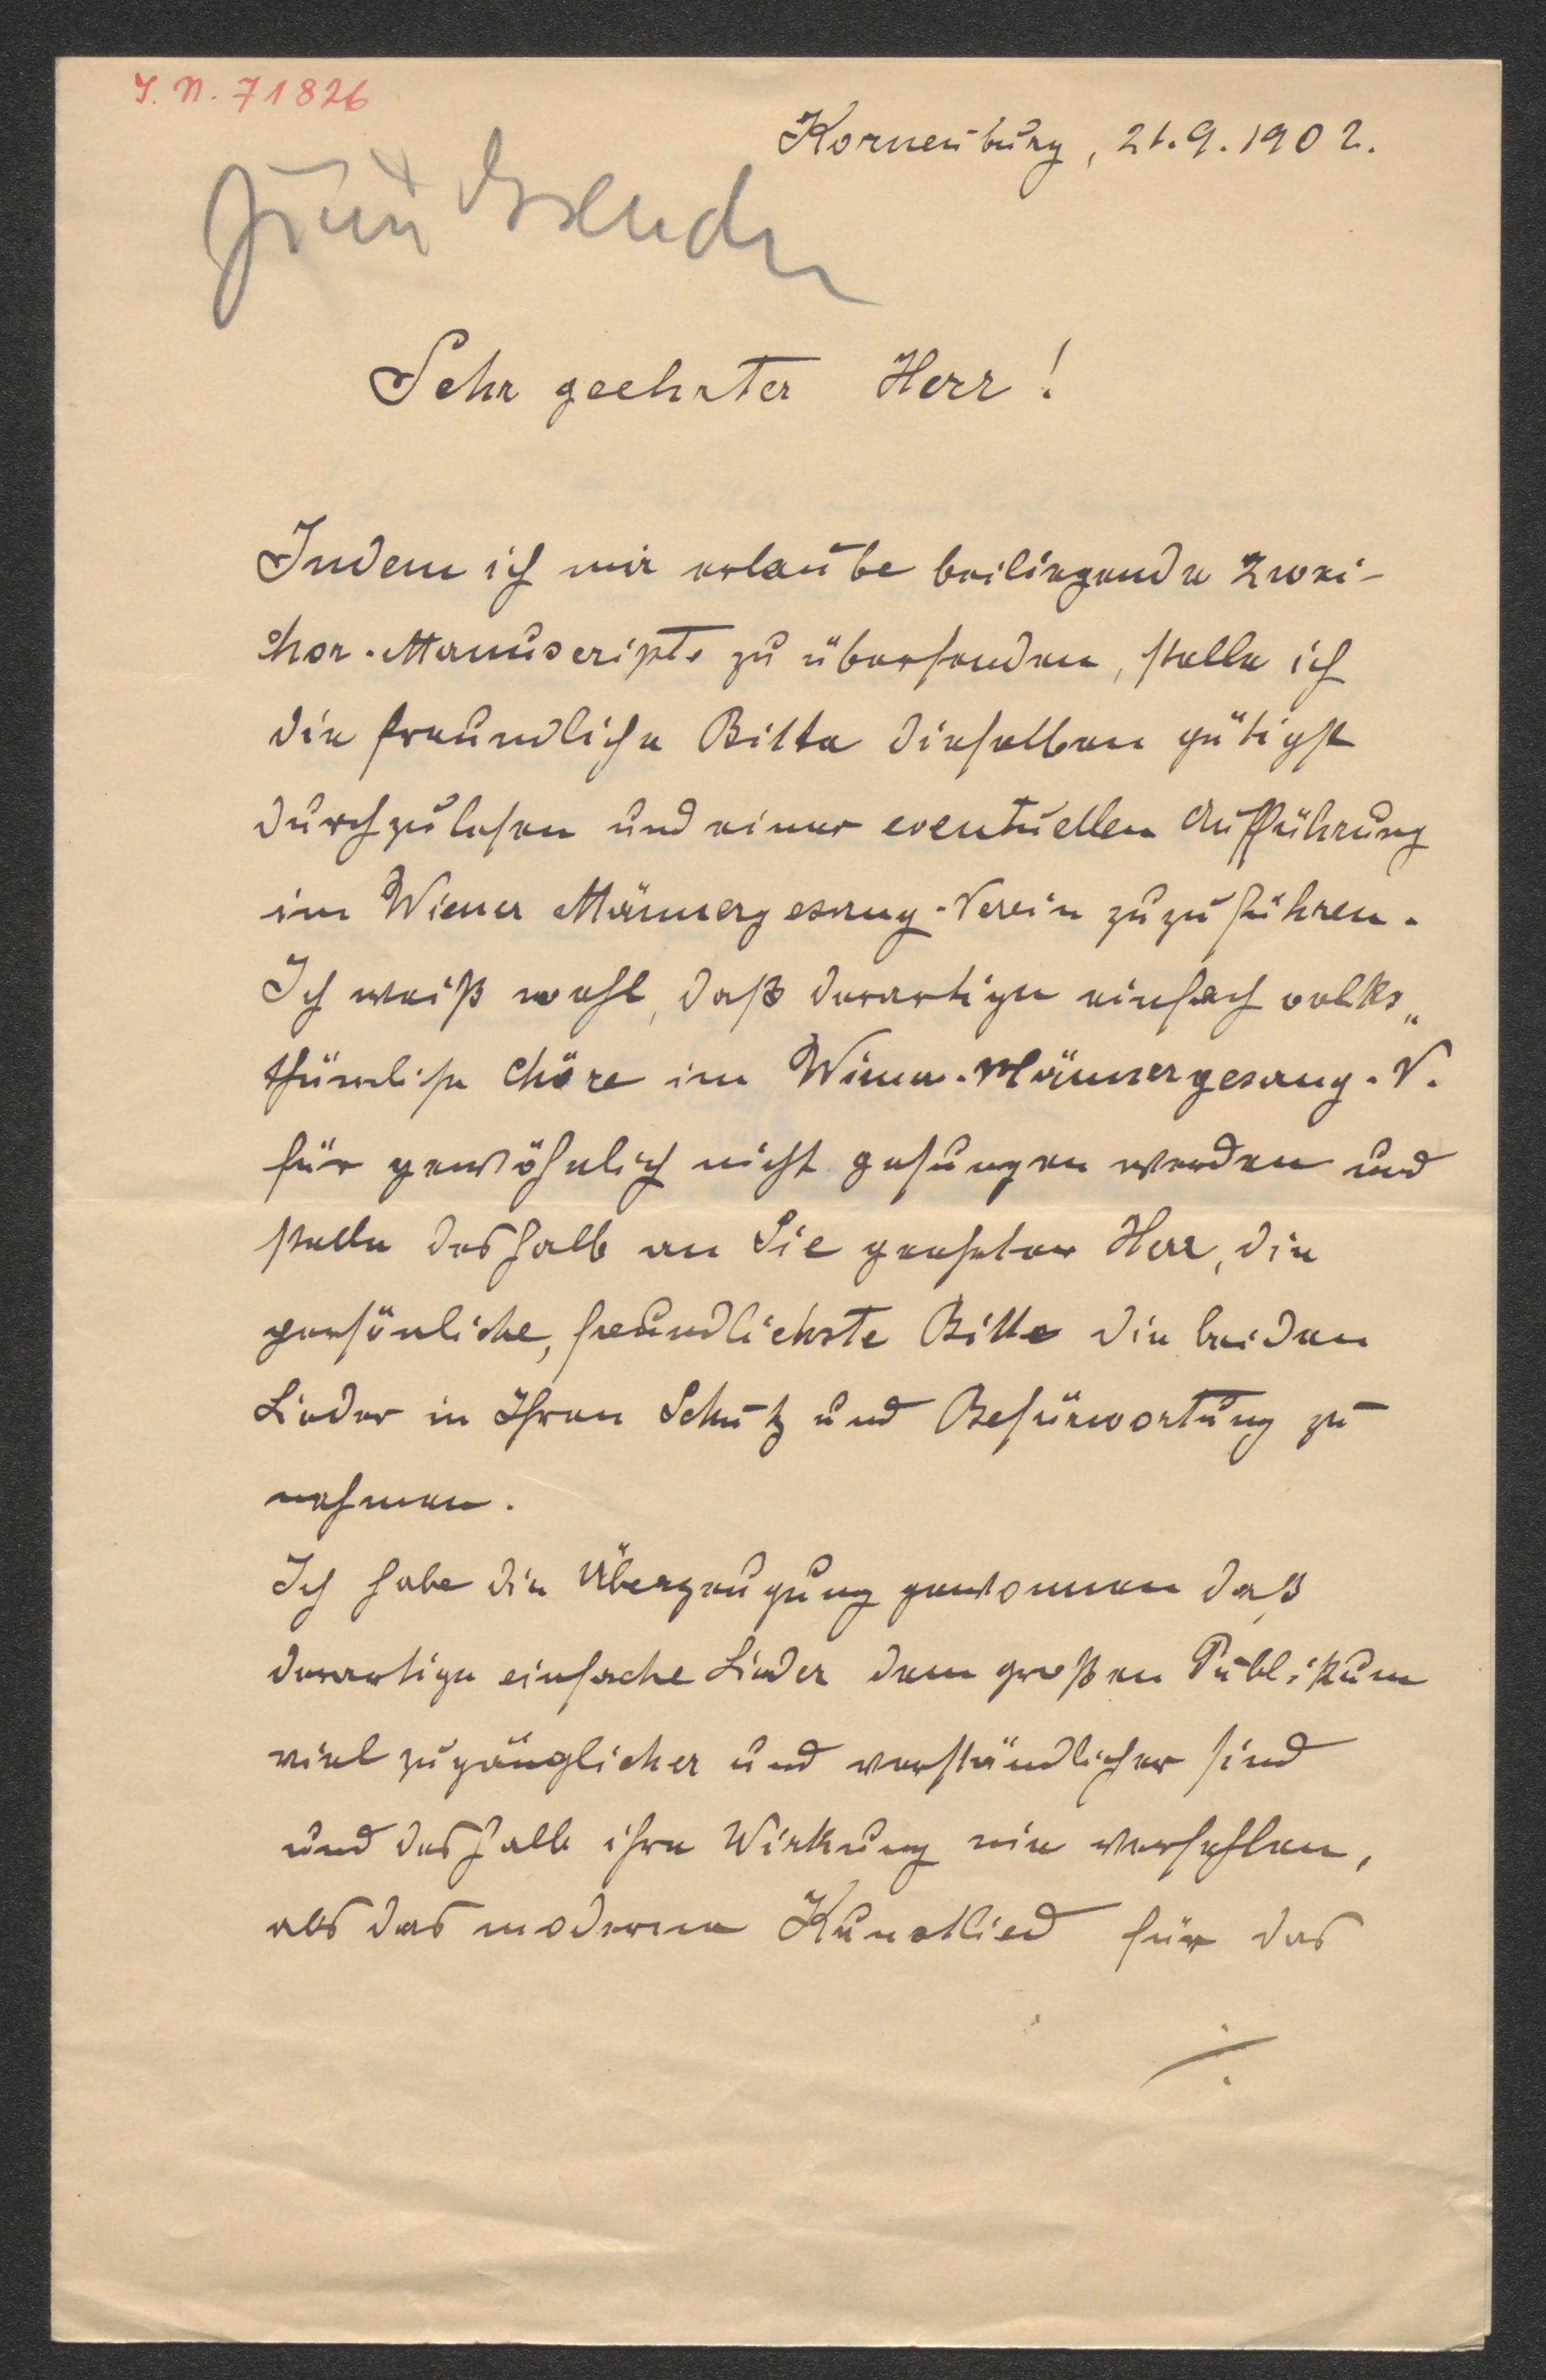 I. N. 71826
Korneuburg, 21.9.1902.
Sehr geehrter Herr!
Indem ich mir erlaube beiliegende zwei-
Chor-Manuscripte zu übersenden, stelle ich
die freundliche Bitte dieselben gütigst
durchzulesen und einer eventuellen Aufführung
im Wiener Männergesang-Verein zuzuführen.
Ich weiß wohl, daß derartige einfach volks„
thümliche Chöre im Wiener-Männergesang-V.
für gewöhnlich nicht gesungen werden und
stelle deshalb an Sie geehrter Herr, die
persönliche, freundlichste Bitte die beiden
Lieder in Ihren Schutz und Befürwortung zu
nehmen.
Ich habe die Überzeugung gewonnen daß
derartige einfache Lieder dem großen Publikum
viel zugänglicher und verständlicher sind
und deshalb ihre Wirkung nie verfehlen,
als das moderne Kunstlied für das
./.